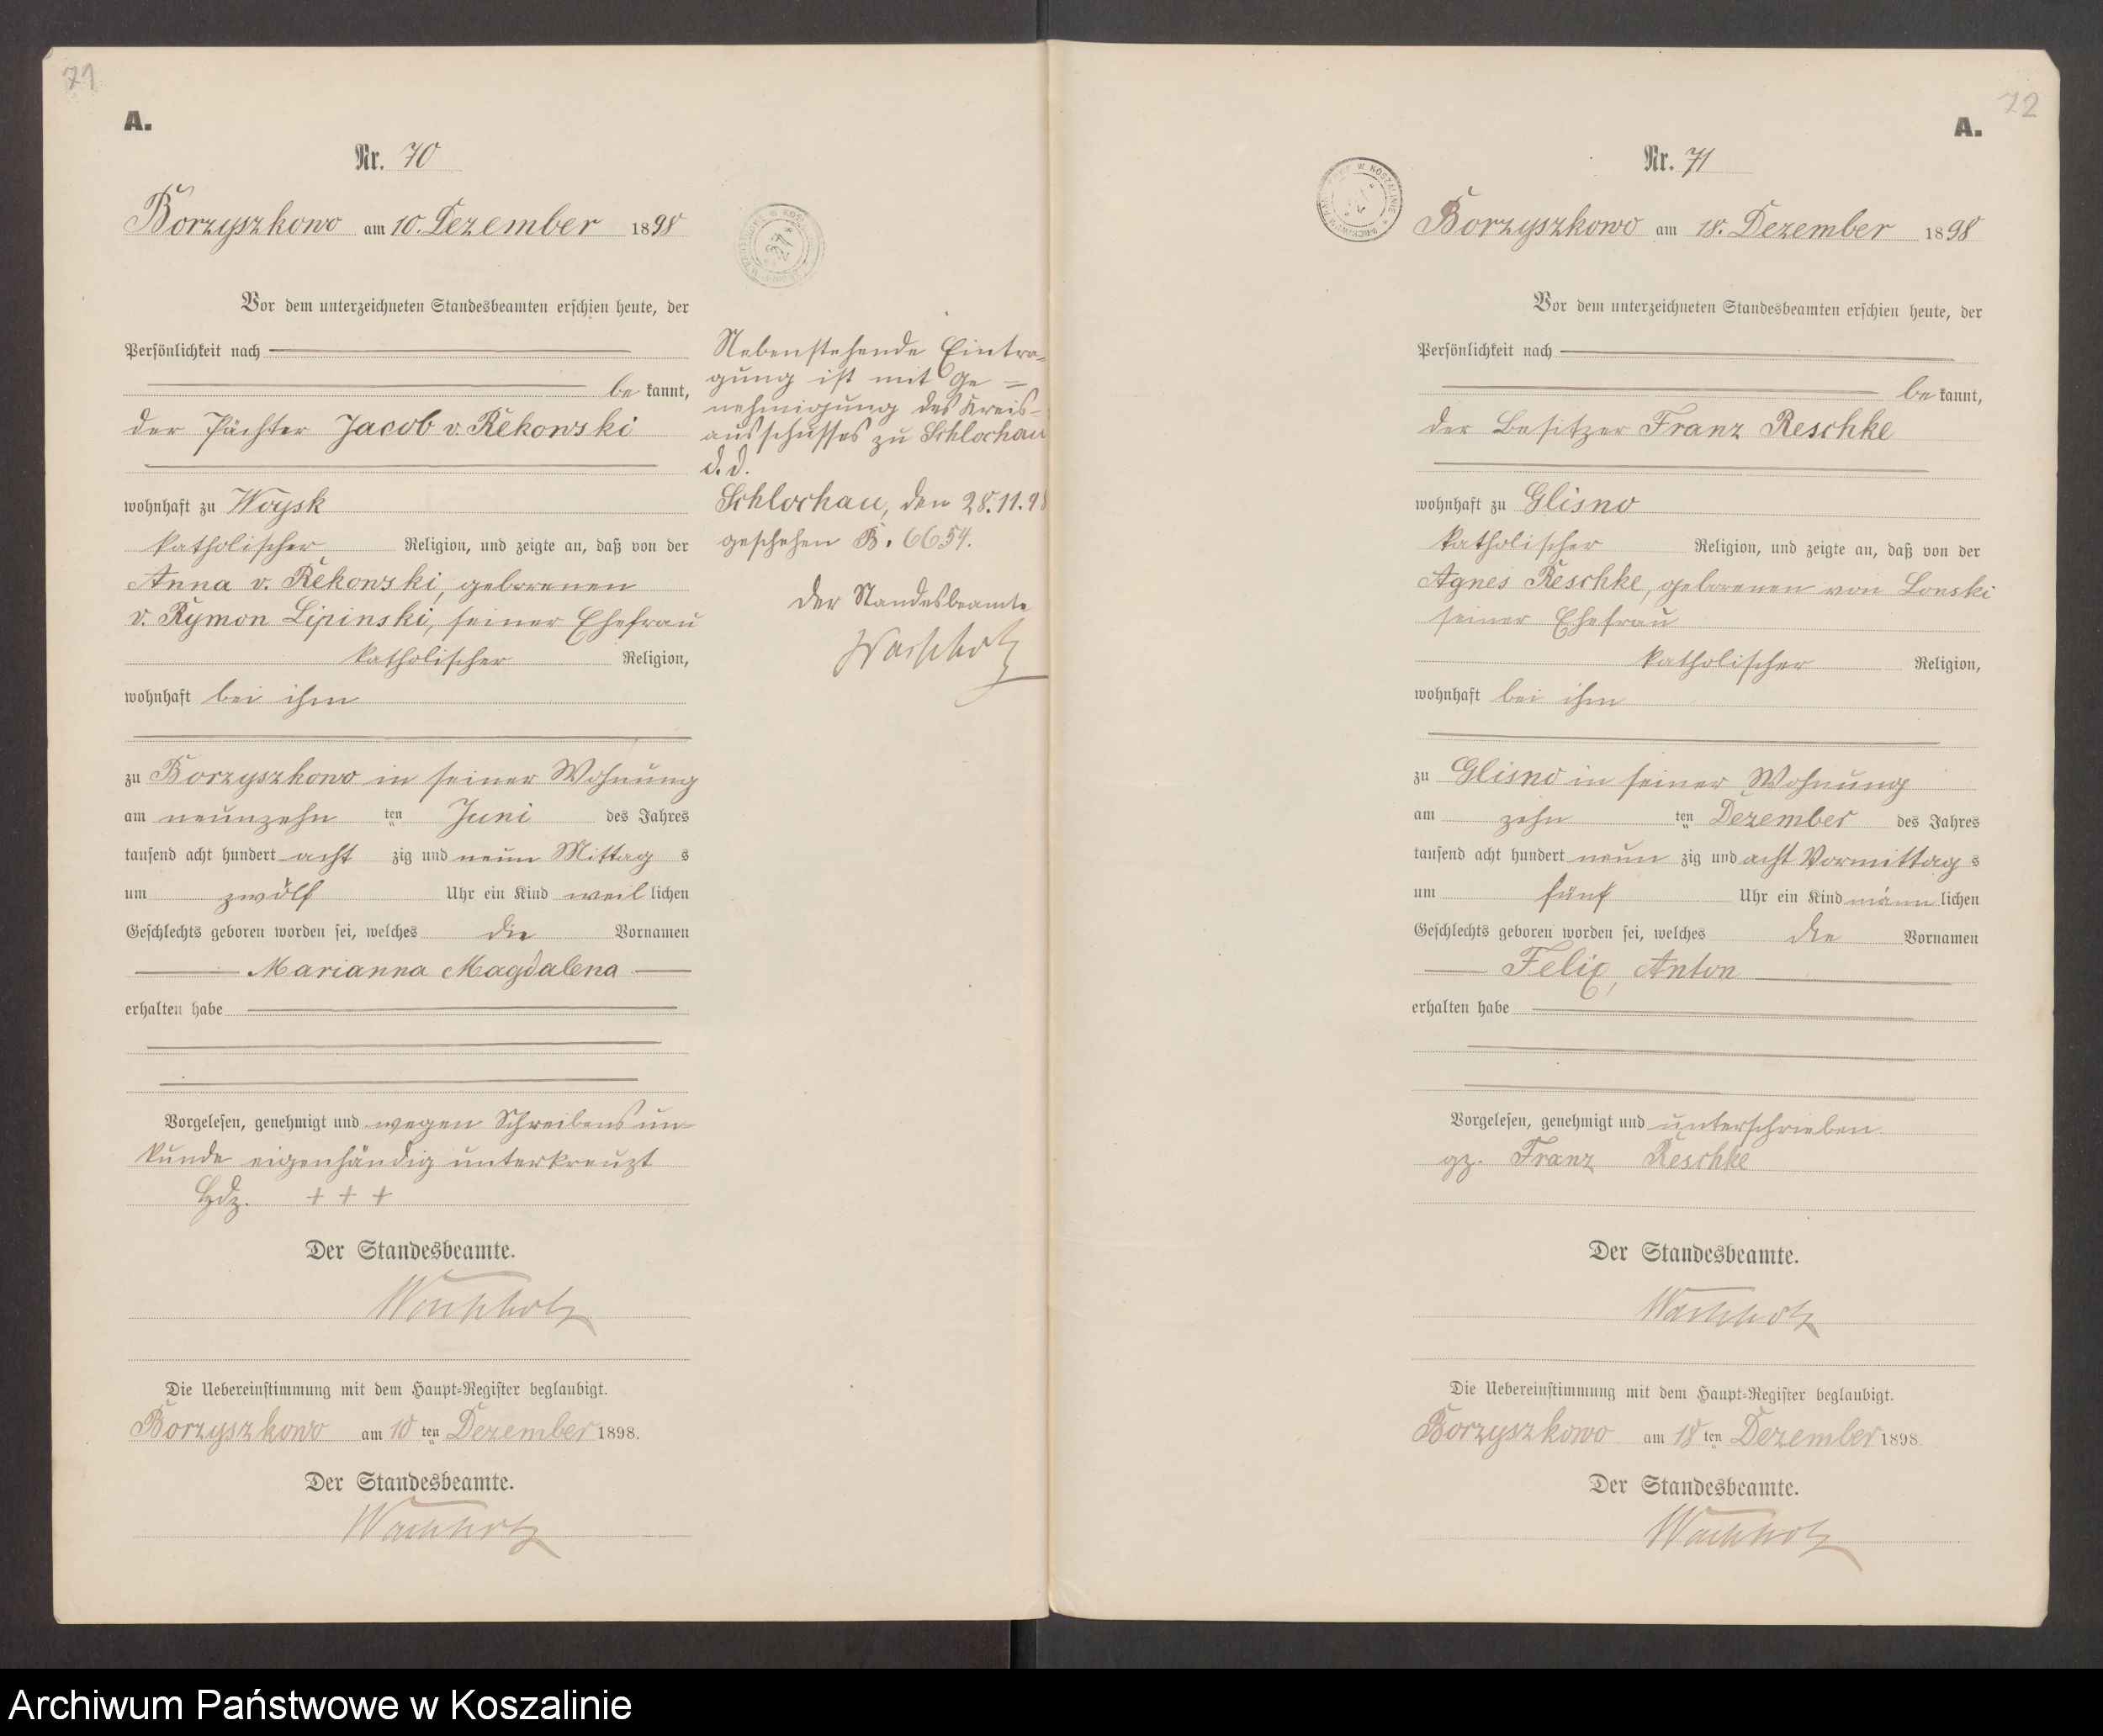 71
A.
Nr. 70
Borzyszkowo am 10. Dezember 1898
Vor dem unterzeichneten Standesbeamten erschien heute, der
Persönlichkeit nach
be kannt,
der Pächter Jacob v. Rekowski
wohnhaft zu Woysk
katholischer Religion, und zeigte an, daß von der
Anna v. Rekowski, geborenen
v. Rymon Lipinski, seiner Ehefrau
katholischer Religion,
wohnhaft bei ihm
zu Borzyszkowo in seiner Wohnung
am neunzehn ten Juni des Jahres
tausend acht hundert acht zig und neun Mittag s
um zwölf Uhr ein Kind weib lichen
Geschlechts geboren worden sei, welches die Vornamen
Marianna Magdalena
erhalten habe
Vorgelesen, genehmigt und wegen Schreibensun-
kunde eigenhändig unterkreuzt
Hdz. + + +
Der Standesbeamte.
Wachholz
Die Uebereinstimmung mit dem Haupt-Register beglaubigt.
Borzyszkowo am 10 ten Dezember 1898.
Der Standesbeamte.
Wachholz
Nebenstehende Eintra-
gung ist mit Ge=
nehmigung des Kreis-
ausschusses zu Schlochau
d. d.
Schlochau, den 28.11.98
geschehen B. 6654.
Der Standesbeamte
Wachholz
72
A.
Nr. 71
Borzyszkowo am 18. Dezember 1898
Vor dem unterzeichneten Standesbeamten erschien heute, der
Persönlichkeit nach
be kannt,
der Besitzer Franz Reschke
wohnhaft zu Glisno
katholischer Religion, und zeigte an, daß von der
Agnes Reschke, geborenen von Lonski
seiner Ehefrau
katholischer Religion,
wohnhaft bei ihm
zu Glisno in seiner Wohnung
am zehn ten Dezember des Jahres
tausend acht hundert neun zig und acht Vormittag s
um fünf Uhr ein Kind männ lichen
Geschlechts geboren worden sei, welches die Vornamen
Felix, Anton
erhalten habe
Vorgelesen, genehmigt und unterschrieben
gz. Franz Reschke
Der Standesbeamte.
Wachholz
Die Uebereinstimmung mit dem Haupt-Register beglaubigt.
Borzyszkowo am 18 ten Dezember 1898.
Der Standesbeamte.
Wachholz
Archiwum Państwowe w Koszalinie